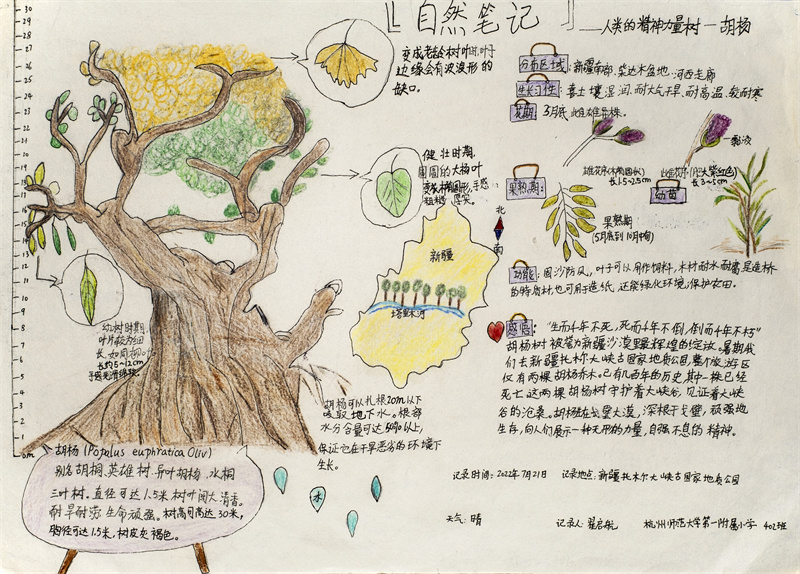 自然笔记
——人类的精神力量树—胡杨
变成老龄树叶时,叶子
边缘会有波浪形的
缺口。
分布区域:新疆南部、柴达木盆地、河西走廊
生长习性:喜土壤湿润,耐大气干旱,耐高温,较耐寒
花期:3月底,雌雄异株。
雄花序(木椭圆状)
长1.5~2.5cm
雌花序(柱头紫红色)
长3~5cm
黏液
健壮时期,
周围的大杨叶
变成椭圆形,手感
粗糙、厚实
果熟期:
果熟期
(5月底到10月中旬)
幼苗
北
南
新疆
塔里木河
功能:固沙防风,叶子可以用作饲料,木材耐水耐腐是造桥
的特质材,也可用于造纸,还能绿化环境,保护农田。
感悟:“生而千年不死,死而千年不倒,倒而千年不朽”
胡杨树被誉为新疆沙漠里最辉煌的绽放。暑期我
们去新疆托木尔大峡谷国家地质公园,整个旅游区
仅有两棵胡杨乔木。已有几百年的历史,其中一株已经
死亡。这两棵胡杨树守护着大峡谷,见证着大峡
谷的沧桑。胡杨驻戈壁大漠,深根于戈壁,顽强地
生存,向人们展示一种无形的力量,自强不息的精神。
幼树时期,
叶片较为细
长,如同柳叶
长约5~12cm
手感光滑绵软
胡杨可以扎根20m以下
吸取地下水。根部
水分含量可达50%以上,
保证它在干旱恶劣的环境下
生长。
30
29
28
27
26
25
24
23
22
21
20
19
18
17
16
15
14
13
12
11
10
9
8
7
6
5
4
3
2
1
0m
胡杨 (Populus euphratica Oliv)
别名胡桐、英雄树、异叶胡杨、水桐
三叶树。直径可达1.5米 树叶阔大清香。
耐旱耐涝 生命顽强。树高可高达30米,
胸径可达1.5米,树皮灰褐色。
水
记录时间:2022年7月21日 记录地点:新疆托木尔大峡谷国家地质公园
天气:晴 记录人:翟启航 杭州师范大学第一附属小学 402班